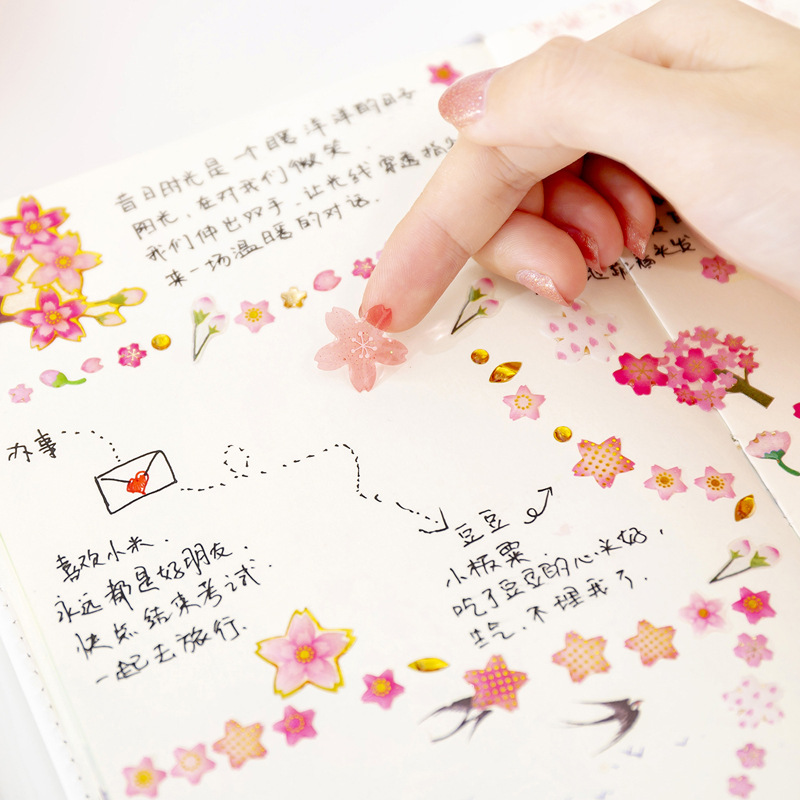 昔日时光是一个暖洋洋的日子
阳光,在对我们微笑.
我们伸出双手,让光线穿透指尖
来一场温暖的对话.
办事
喜欢小米.
永远都是好朋友.
快点结束考试.
一起去旅行.
豆豆
小板栗.
吃了豆豆的心,米好,
生气,不理我了.